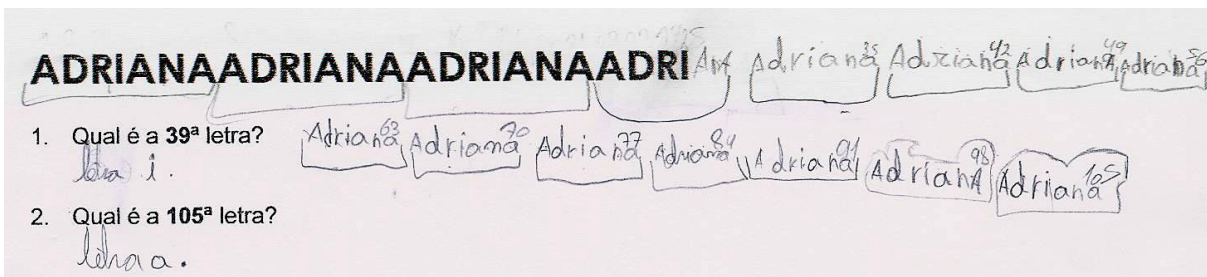 ADRIANAADRIANAADRIANAADRI Ana Adriana 35 Adriana 42 Adriana 49 Adriana 56
1. Qual é a 39ª letra? Adriana 63 Adriana 70 Adriana 77 Adriana 84 Adriana 91 Adriana 98 Adriana 105
letra i.
2. Qual é a 105ª letra?
letra a.